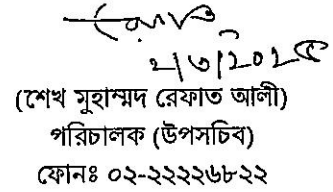 ২/৩/২০২৫
(শেখ মুহাম্মদ রেফাত আলী)
পরিচালক (উপসচিব)
ফোনঃ ০২-২২২২৬৮২২